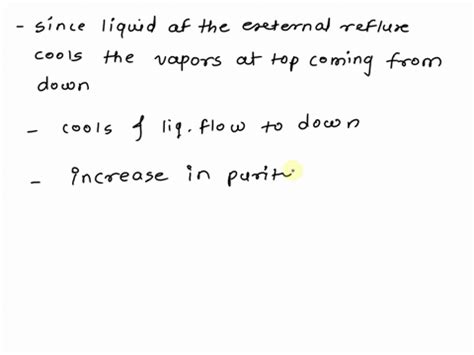 - since liquid of the external reflux
cools the vapors at top coming from
down
- cools & liq. flow to down
- Increase in purit